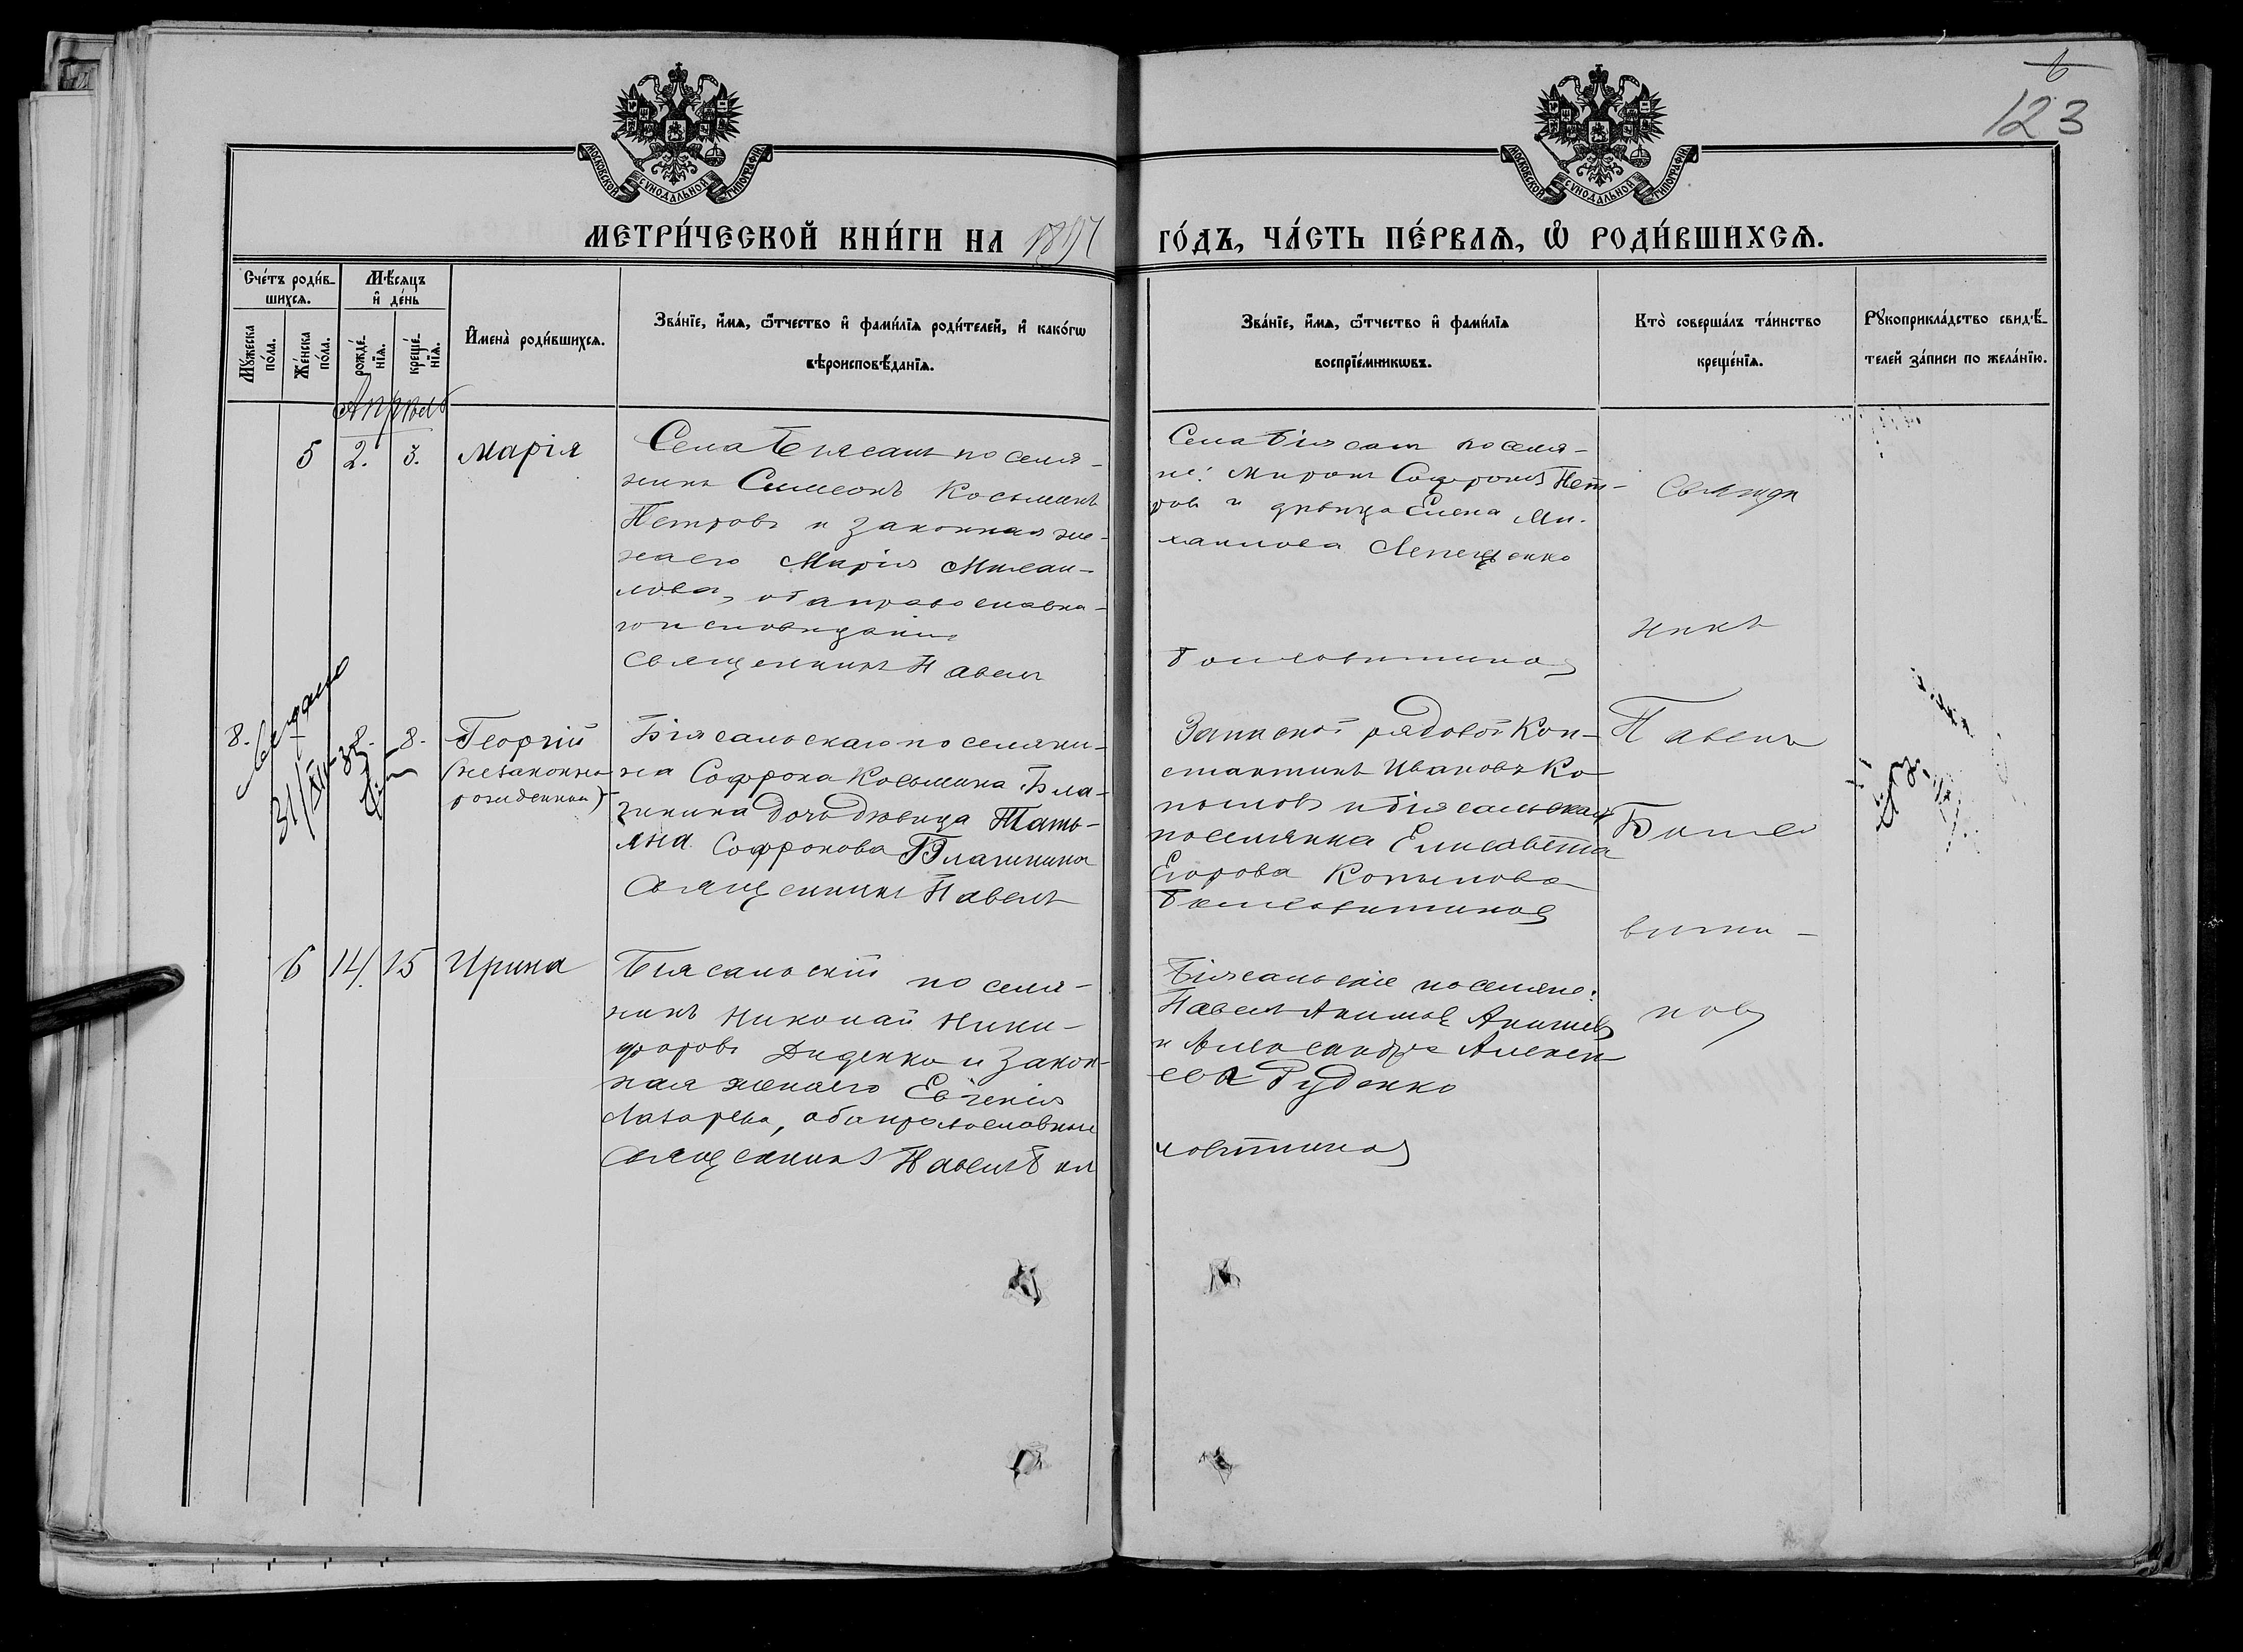 6
123
МОСКОВСКОЙ СѴНОДАЛЬНОЙ ТИПОГРАФІИ
МОСКОВСКОЙ СѴНОДАЛЬНОЙ ТИПОГРАФІИ
МЕТРИ́ЧЕСКОЙ КНИ́ГИ НА 1897 ГО́ДЪ, ЧА́СТЬ ПЕ́РВАѦ, Ѽ РОДИ́ВШИХСѦ.
Сче́тъ роди́в-
шихсѧ.
Мѣ́сѧцъ
и҆ де́нь
Мꙋ́жеска
по́ла.
Же́нска
по́ла.
рожде́-
нїѧ.
креще́-
нїѧ.
И҆мена̀ роди́вшихсѧ.
Зва́нїе, и҆́мѧ, ѻ҆́тчество и҆ фами́лїѧ роди́телей, и҆ како́гѡ
вѣроисповѣ́данїѧ.
Зва́нїе, и҆́мѧ, ѻ҆́тчество и҆ фами́лїѧ
воспрїе́мникѡвъ.
Кто̀ соверша́лъ та́инство
креще́нїѧ.
Рꙋкоприкла́дство свидѣ́-
телей за́писи по жела́нїю.
Апрѣль
5 2. 3. Марія
Села Біясалы поселя-
нинъ Симеонъ Косьминъ
Петровъ и законная же-
на его Марія Михаи-
лова, оба православна-
го исповѣданія
Священникъ Павелъ
Села Біясалы поселя-
не: Миронъ Софроновъ Пет-
ровъ и дѣвица Елена Ми-
хаилова Лепещенко
Священ
никъ
8. 8. 8. Георгій
(незаконно
рожденный)
31/XII-33
Біясальскаго поселяни-
на Софрона Косьмина Бла-
гинина дочь дѣвица Тать-
яна Софронова Благинина
Священникъ Павелъ
Запасной рядовой Кон-
стантинъ Ивановъ Ко-
пыловъ и біясальская
поселянка Елисавета
Егорова Копылова
Павелъ
6 14. 15 Ирина
Біясальскій поселя-
нинъ Николай Ники-
форовъ Диденко и закон-
ная жена его Евгенія
Лазарева, оба православные
Священникъ Павелъ
Біясальскіе поселяне:
Павелъ Акимовъ Акимовъ
и Александра Алексѣ-
ева Руденко